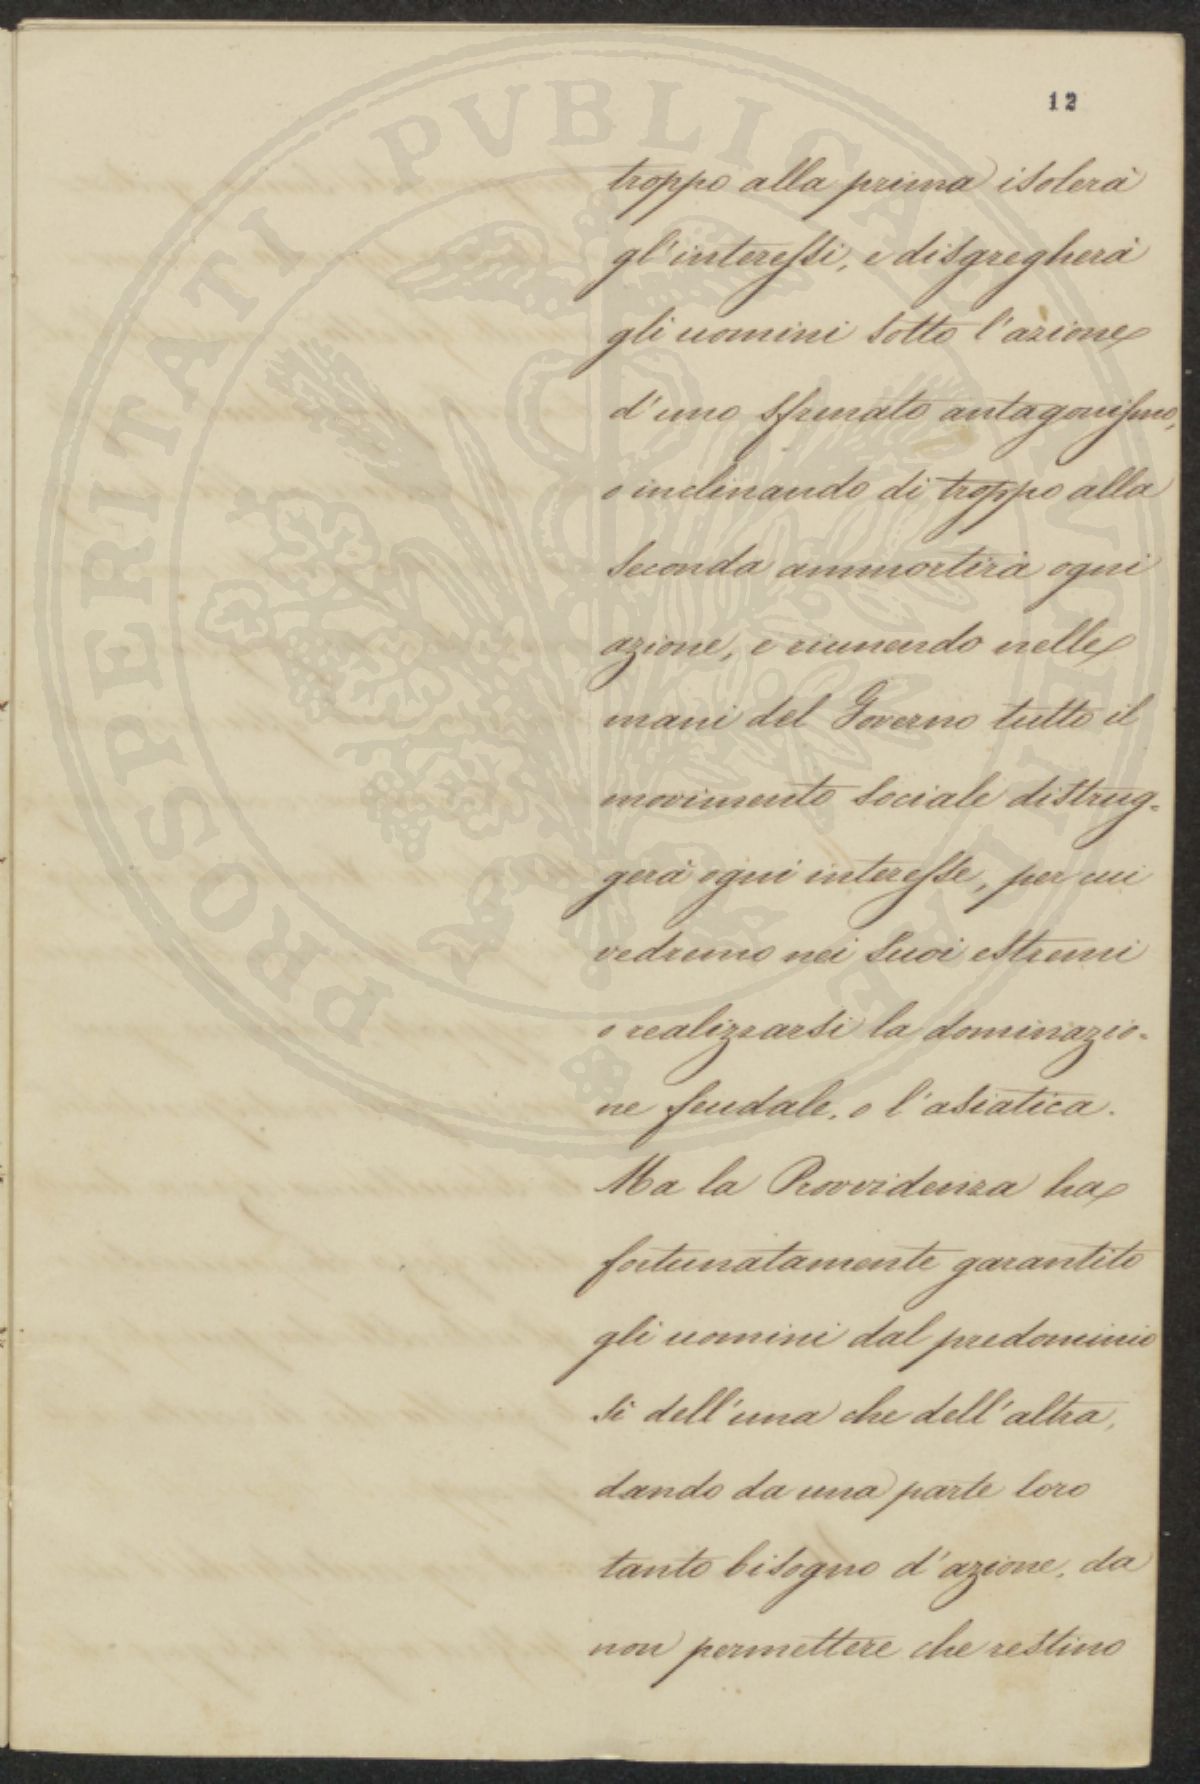 12
troppo alla prima isolerà
gl'interessi, e disgregherà
gli uomini sotto l'azione
d'uno sfrenato antagonismo,
o inclinando di troppo alla
seconda ammortirà ogni
azione, e riunendo nelle
mani del Governo tutto il
movimento sociale distrug-
gerà ogni interesse, per cui
vedremo nei suoi estremi
o realizzarsi la dominazio-
ne feudale, o l'asiatica.
Ma la Provvidenza ha
fortunatamente garantito
gli uomini dal predominio
sì dell'una che dell'altra,
dando da una parte loro
tanto bisogno d'azione, da
non permettere che restino
PROSPERITATI PVBLICAE